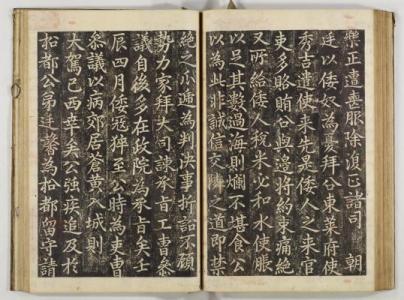 樂正遭喪服除復正諸司 朝
廷以倭奴為憂拜公東萊府使
秀吉遣使來先是倭人之來官
吏多賂賄公與邊將約束痛絶
又所給倭人稅米必和水使脹
以足其數過海則爛不堪食公
以為此非誠信交隣之道即禁
絶之小遞為判決事折訟不顧
勢力家拜大司諫承旨工曹參
議自後多在政院為承旨矣壬
辰四月倭寇猝至公時為吏曹
參議以病郊居蒼黃入城則
大駕已西幸矣公強疾追及於
松都公弟廷馨為松都留守請